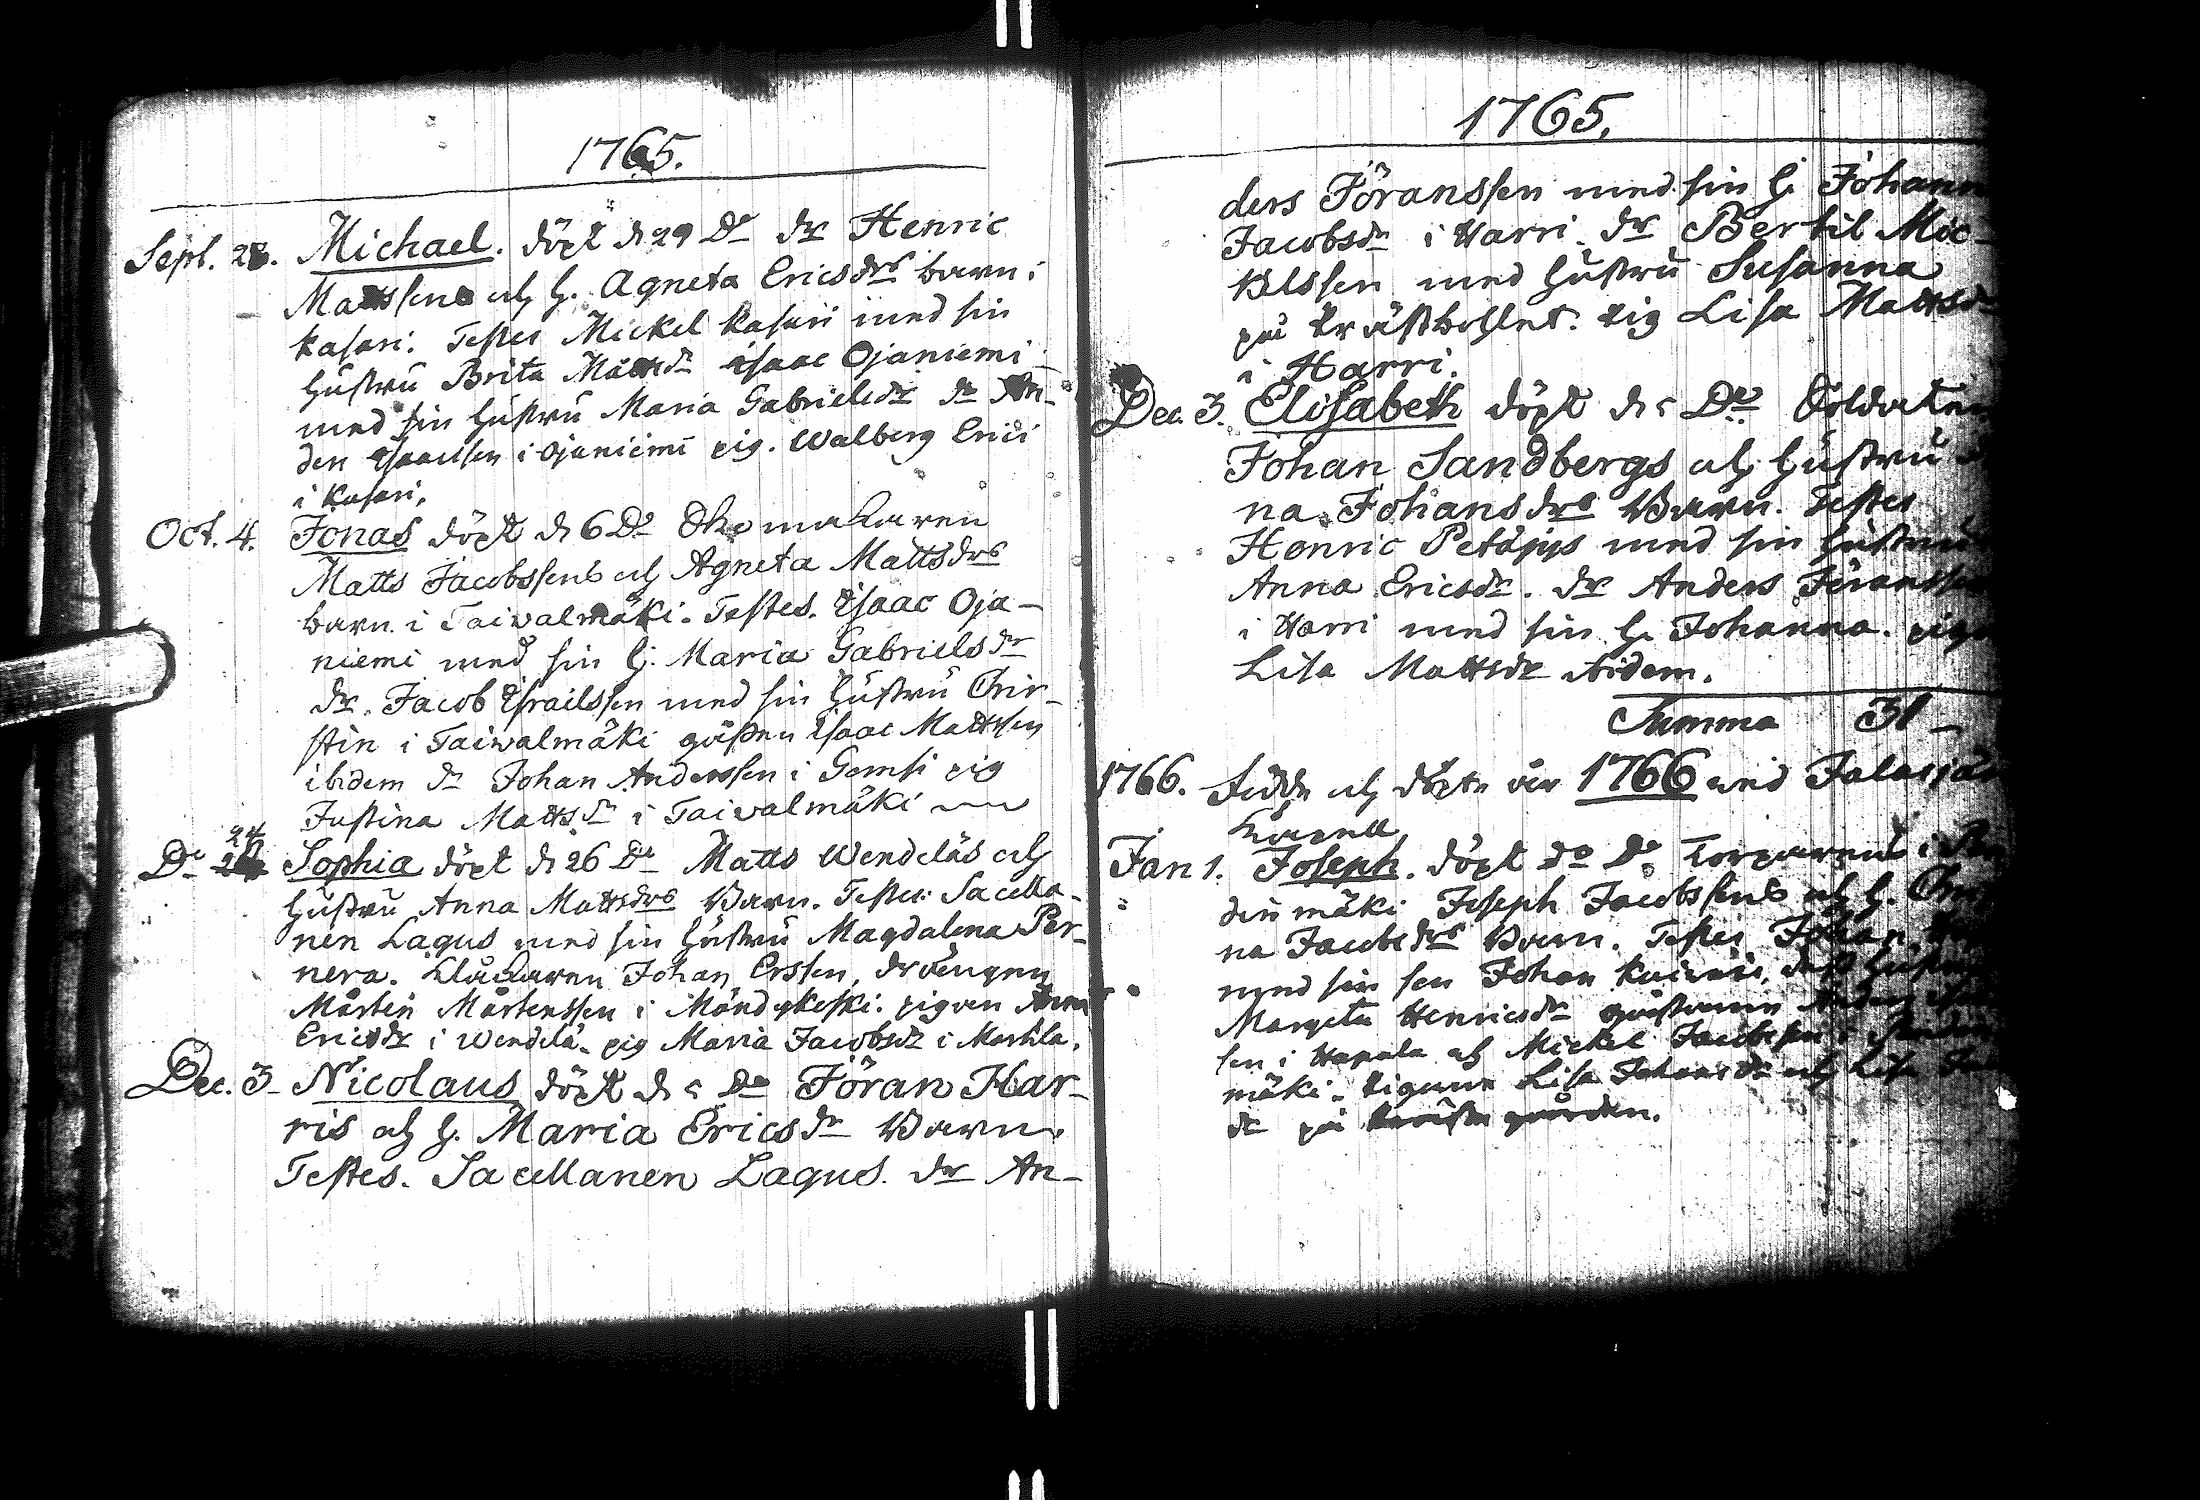 1765.
Sept. 28. Michael. döpt d. 29 Do dr Henric
Mattssens och h. Agneta Ericsdrs barn i
Kasari. Testes Mickel Kasari med sin
hustru Brita Mattsdr Isaac Ojaniemi
med sin hustru Maria Gabrielsdr dr An-
ders Isaacssen i Ojaniemi pig. Walberg Erici
i Kasari.
Oct. 4. Jonas döpt d 6 Do Skomakaren
Matts Jacobssens och Agneta Mattsdrs
barn i Taivalmäki. Testes. Isaac Oja-
niemi med sin h. Maria Gabrielsdr
dr. Jacob Israilssen med sin hustru Chir-
stin i Taiwalmäki gossen Isaac Mattssen
ibidem dr Johan Anderssen i Gemsi pig
Justina Mattsdr i Taivalmäki
Do 24 Sophia döpt d 26 Do Matts Wendeläs och
hustru Anna Mattsdrs Barn. Testes: Sacella-
nen Lagus med sin hustru Magdalena Per-
nera. Klåckaren Johan Erssen, drängen
Mårten Mårtenssen i Mändykoski. pigan Anna
Ericsdr i Wendelä. pig Maria Jacobsdr i Markila.
Dec. 3. Nicolaus döpt d 5 Do Jöran Har-
ris och h. Maria Ericsdr Barn.
Testes. Sacellanen Lagus. dr An-
1765.
ders Jöranssen med sin h. Johann
Jacobsdr i Harri. dr Bertil Mic-
klssen med hustru Susanna
på Prästbohlet. Pig Lisa Mattsdr
i Harri.
Dec. 3. Elisabeth döpt d 5 Do Soldaten
Johan Sandbergs och hustru
na Johansdrs Barn. Testes
Henric Petäjys med sin hustru
Anna Ericsdr. dr Anders Jöranssen
i Harri med sin h. Johanna. pig
Lisa Mattsdr ibidem.
Summa 31
1766. Födde och döpte år 1766 wid Jalasjä
Kapell
Jan 1. Joseph. döpt do Do Torparens i
den mäki Joseph Jacobssens och h. Chri
na Jacobsdrs Barn. Testes Johan
med sin son Johan hustru
Margeta Henricsdr Anders
sen i Hapala och Mickel Jacobssen i
mäki. Pigorne Lisa Johansdr och Lisa
dr på gården.